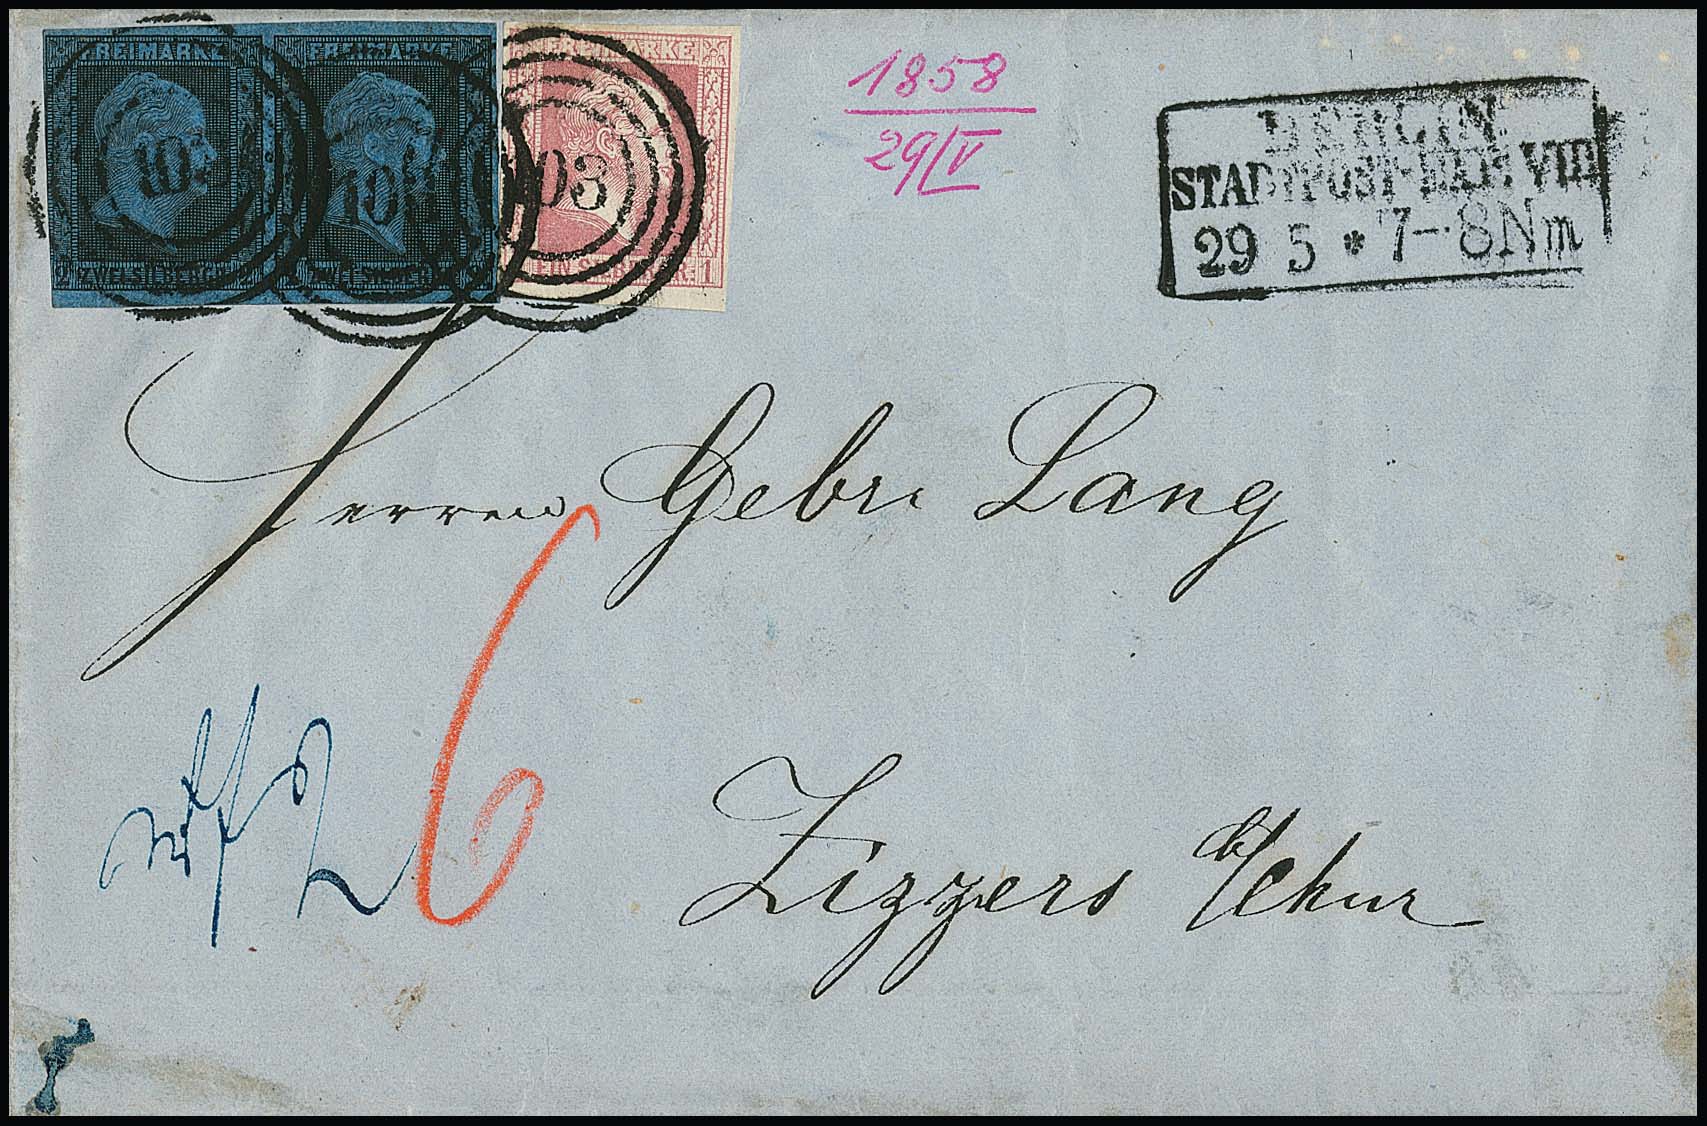 FREIMARKE FREIMARKE FREIMARKE
103 108 103
2 ZWEI SILBERGR. ZWEI SILBERGR. EIN SILBERGR. 1
1858
29/V
BERLIN
STADTPOST-EXP. VIII
29 5 * 7-8 Nm
Herren Gebr. Lang
6
Zizzers b/Chur